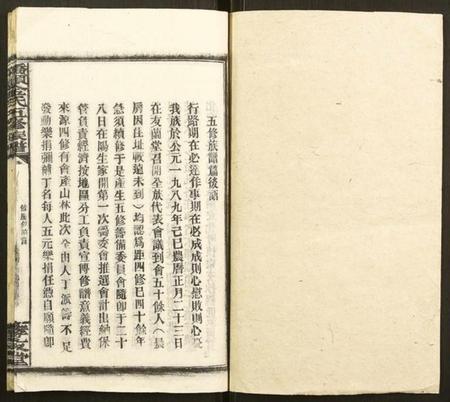 五修族譜篇後語
行路期在必達作事期在必成成則心慰敗則心憂
我族於公元一九八九年己巳農曆正月二十三日
在友蘭堂召開全族代表會議到會五十餘人(長
房因住址駛遠未到)均認爲距四修已四十餘年
急須續修于是產生五修籌備委員會隨即于二十
八日在陽生家開第一次籌委會推選會計出納保
管負責經濟按地區分工負責宣傳修譜意義經費
來源四修有會產山林此次全由人丁派籌不足
發動樂捐彌補丁名每人五元樂捐任憑自願隨即
氏五修族譜
堂